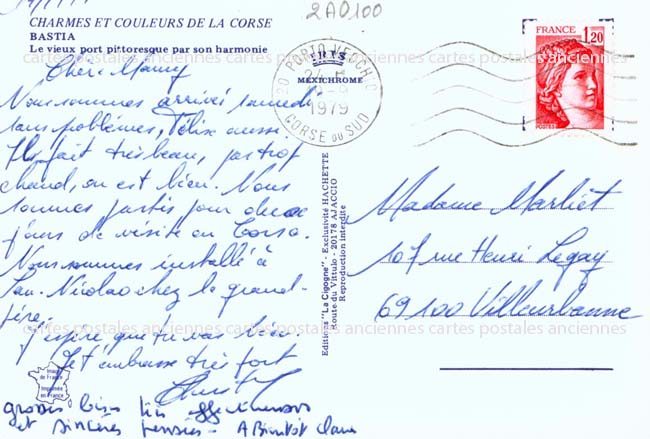 2A0100
CHARMES ET COULEURS DE LA CORSE
BASTIA
Le vieux port pittoresque par son harmonie
IRIS
MEXICHROME
20 PORTO VECCHIO
1979
CORSE DU SUD
FRANCE
1,20
POSTES
Chère Mamy
Nous sommes arrivés samedi
sans problèmes, Félix aussi.
Il fait très beau, pas trop
chaud, on est bien. Nous
sommes partis pour deux
jours de visite en Corse.
Nous sommes installé à
San. Nicolao chez le grand-
père.
J'espère que tu vas bien.
Je t'embrasse très fort
grosses bises très affectueuses
et sincères pensées - A Bientôt
Editions "La Cigogne" - Exclusivité HACHETTE
Route du Vittulo - 20178 AJACCIO
Reproduction interdite
Madame Marliet
107 rue Henri Legay
69100 Villeurbanne
cartes postales anciennes cartes postales anciennes cartes postales anciennes
cartes postales anciennes cartes postales anciennes cartes postales anciennes
Image
de France
Imprimée
en France